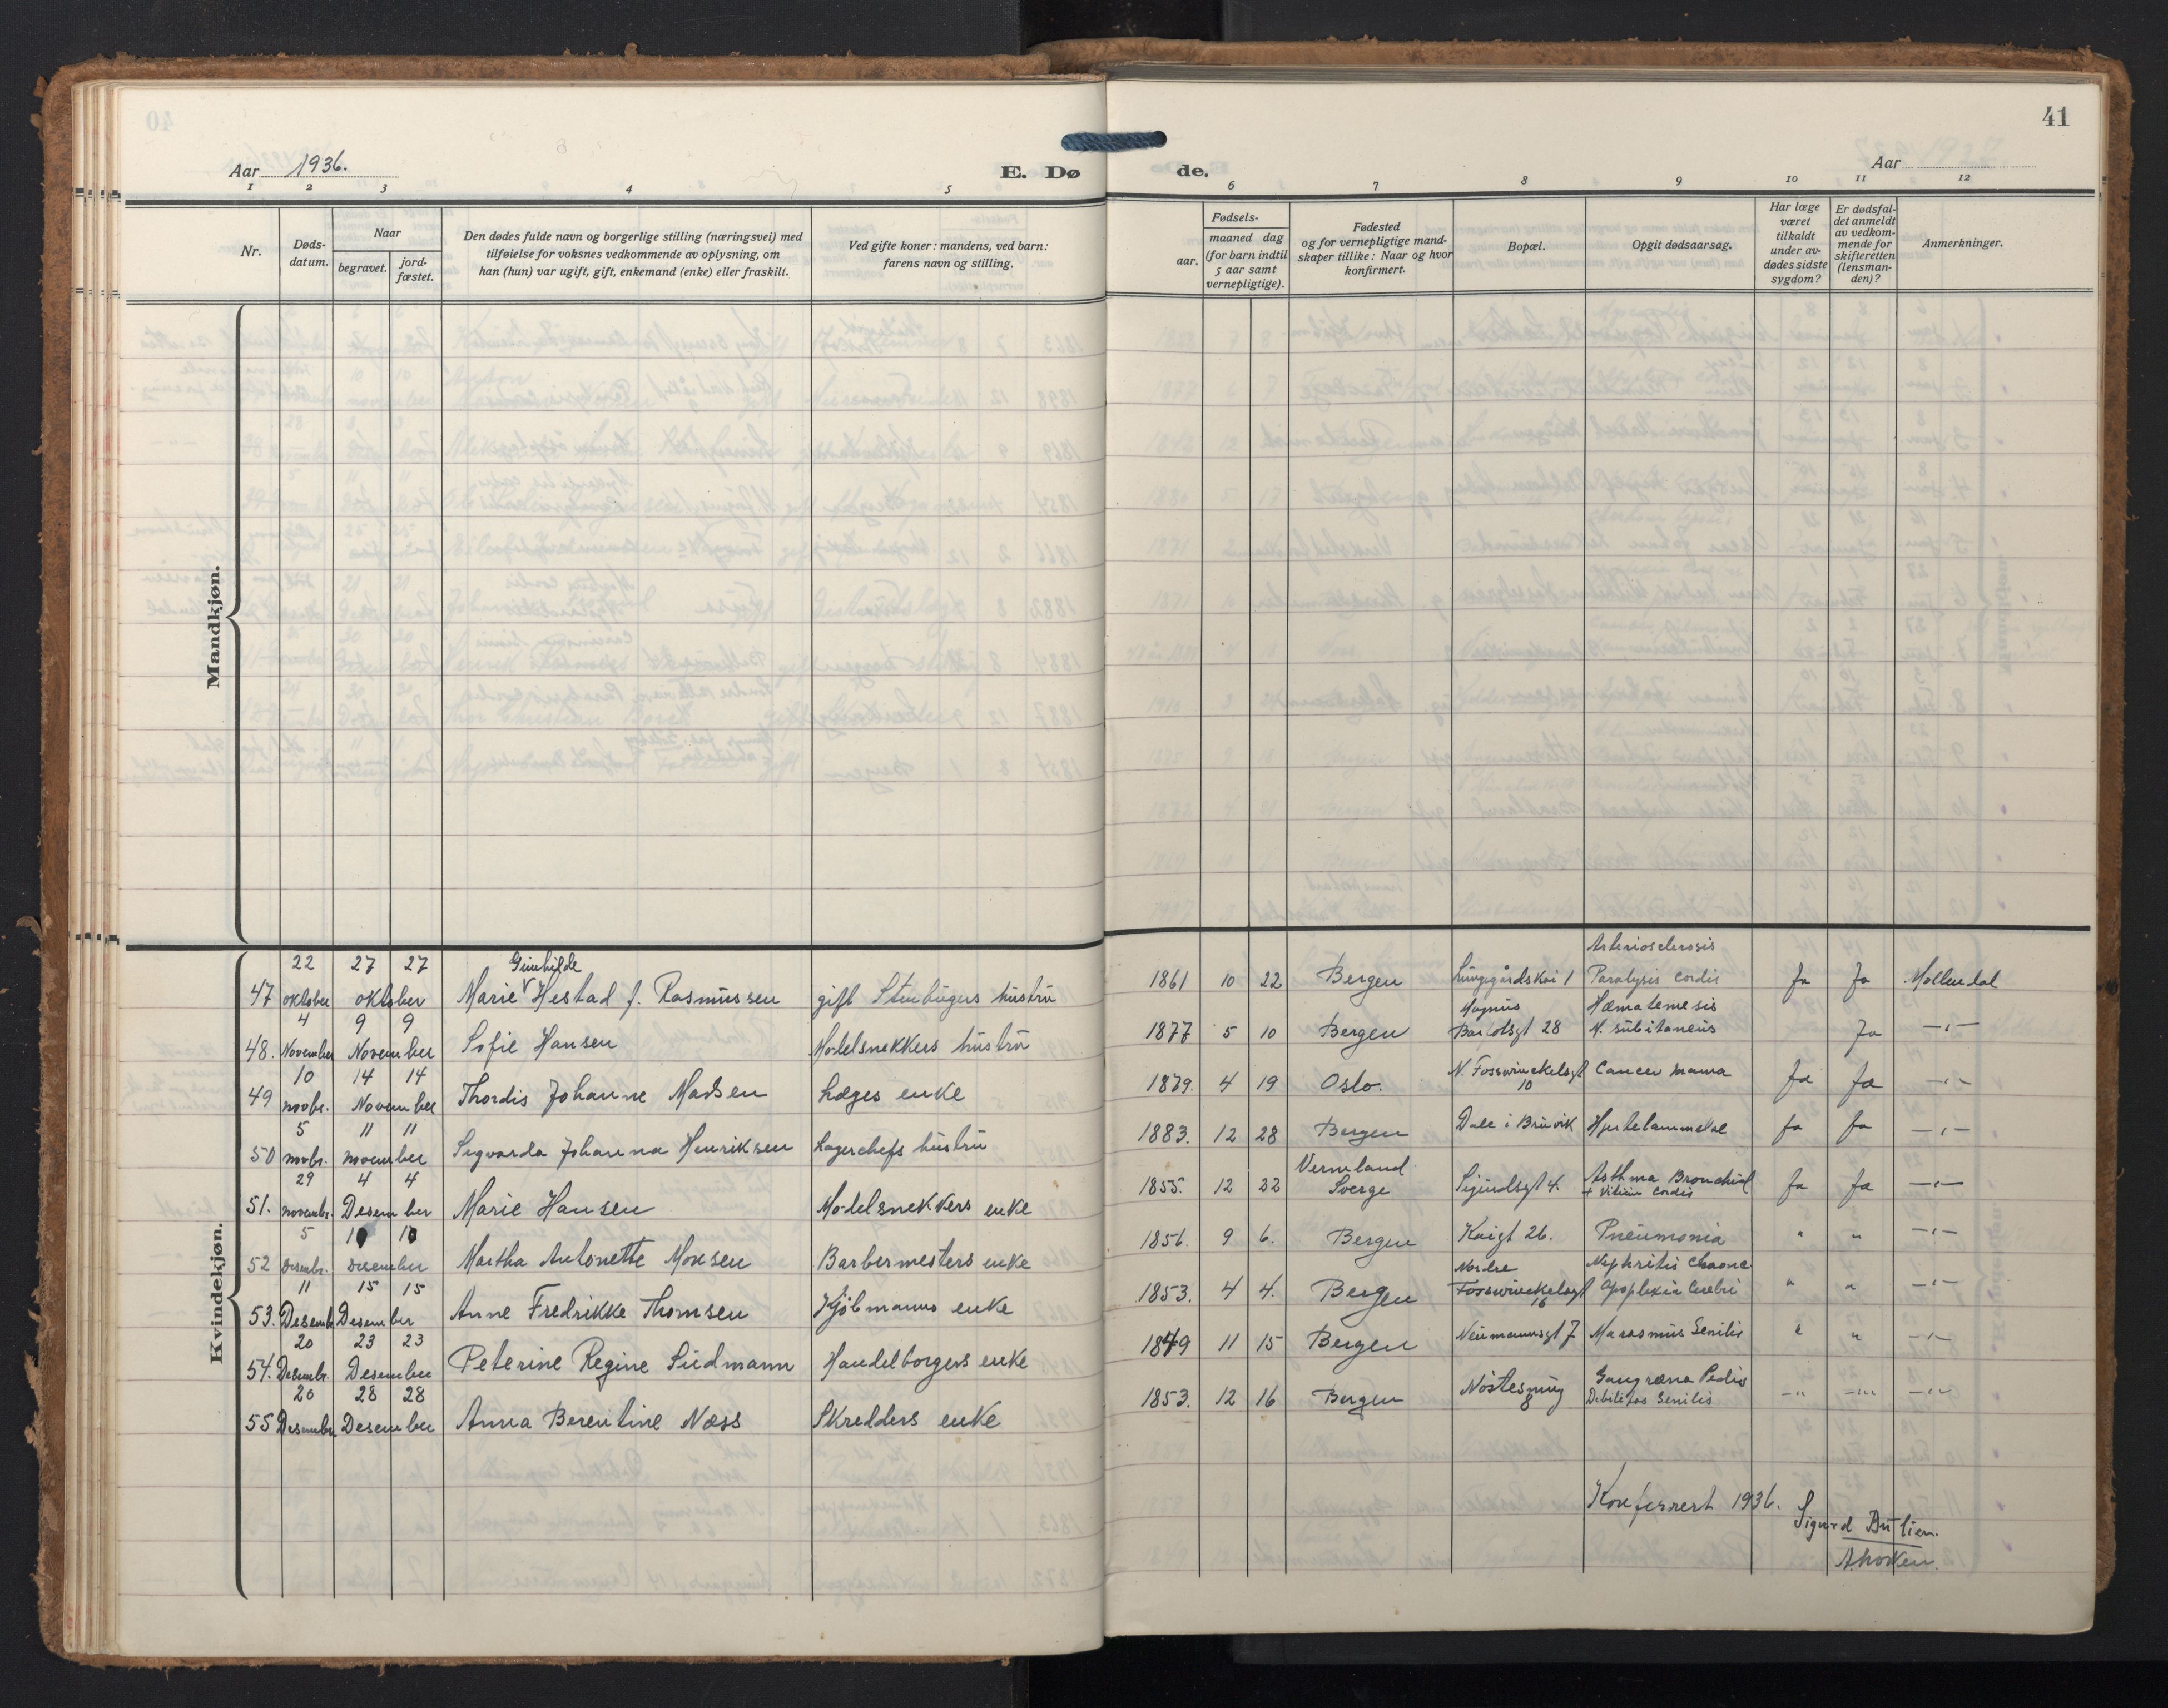 41
Aar 1936.
E. Dø
de.
Aar
1 2 3 4 5
6 7 8 9 10 11 12
Nr.
Døds-
datum.
Naar
begravet.
jord-
fæstet.
Den dødes fulde navn og borgerlige stilling (næringsvei) med
tilføielse for voksnes vedkommende av oplysning, om
han (hun) var ugift, gift, enkemand (enke) eller fraskilt.
Ved gifte koner: mandens, ved barn:
farens navn og stilling.
Fødsels-
aar.
maaned dag
(for barn indtil
5 aar samt
vernepligtige).
Fødested
og for vernepligtige mand-
skaper tillike: Naar og hvor
konfirmert.
Bopæl.
Opgit dødsaarsag.
Har læge
været
tilkaldt
under av-
dødes sidste
sygdom?
Er dødsfal-
det anmeldt
av vedkom-
mende for
skifteretten
(lensman-
den)?
Anmerkninger.
Mandkjøn.
Kvindekjøn.
22 27 27 Gunhilde Arteriosclerosis
47 oktober oktober Marie Hestad f. Rasmussen gift hustru 1861 10 22 Bergen Lungegårdskai 1 Paralysis cordis Ja Ja Møllendal
4 9 9 Magnus Hæmatemesis
48. November November Sofie Hansen Modelsnekkers hustru 1877 5 10 Bergen Barfotsgt 28 M. subitaneus Ja -"-
10 14 14
49 novbr. November Thordis Johanne Madsen Læges enke 1879. 4 19 Oslo. N. Fosswinckelsgt 10 Cancer mama Ja Ja -"-
5 11 11
50 novbr. november Sigvarda Johanna Henriksen Lagerchefs hustru 1883. 12 28 Bergen Dale i Bruvik Hjertelammelse Ja Ja -"-
29 4 4 Vermland
51. novembr. Desember Marie Hansen Modelsnekkers enke 1855. 12 22 Sverge Sigurdsgt 4. Asthma Bronchial + vitium cordis Ja Ja -"-
5 10 10
52 Desembr. Desember Martha Antonette Monsen Barbermesters enke 1856. 9 6. Bergen Kaigt 26. Pneumonia " " -"-
11 15 15 Nordre Nephritis Chronc
53. Desemb. Desember Anne Fredrikke Thomsen Kjøbmanns enke 1853. 4 4. Bergen Fosswinckelsgt 16 Apoplexia Cerebri " " -"-
20 23 23
54. Desembr. Desember Peterine Regine Sudmann Handelborgers enke 1849 11 15 Bergen Neumannsgt 7 Marasmus Senilis " " -"-
20 28 28 Gangræna Pedis
55 Desembr. Desember Anna Berentine Næss Skredders enke 1853. 12 16 Bergen Nöstesmug 8 Debilitas Senilis -"- -"- -"-
Konferrert 1936.
Sigurd